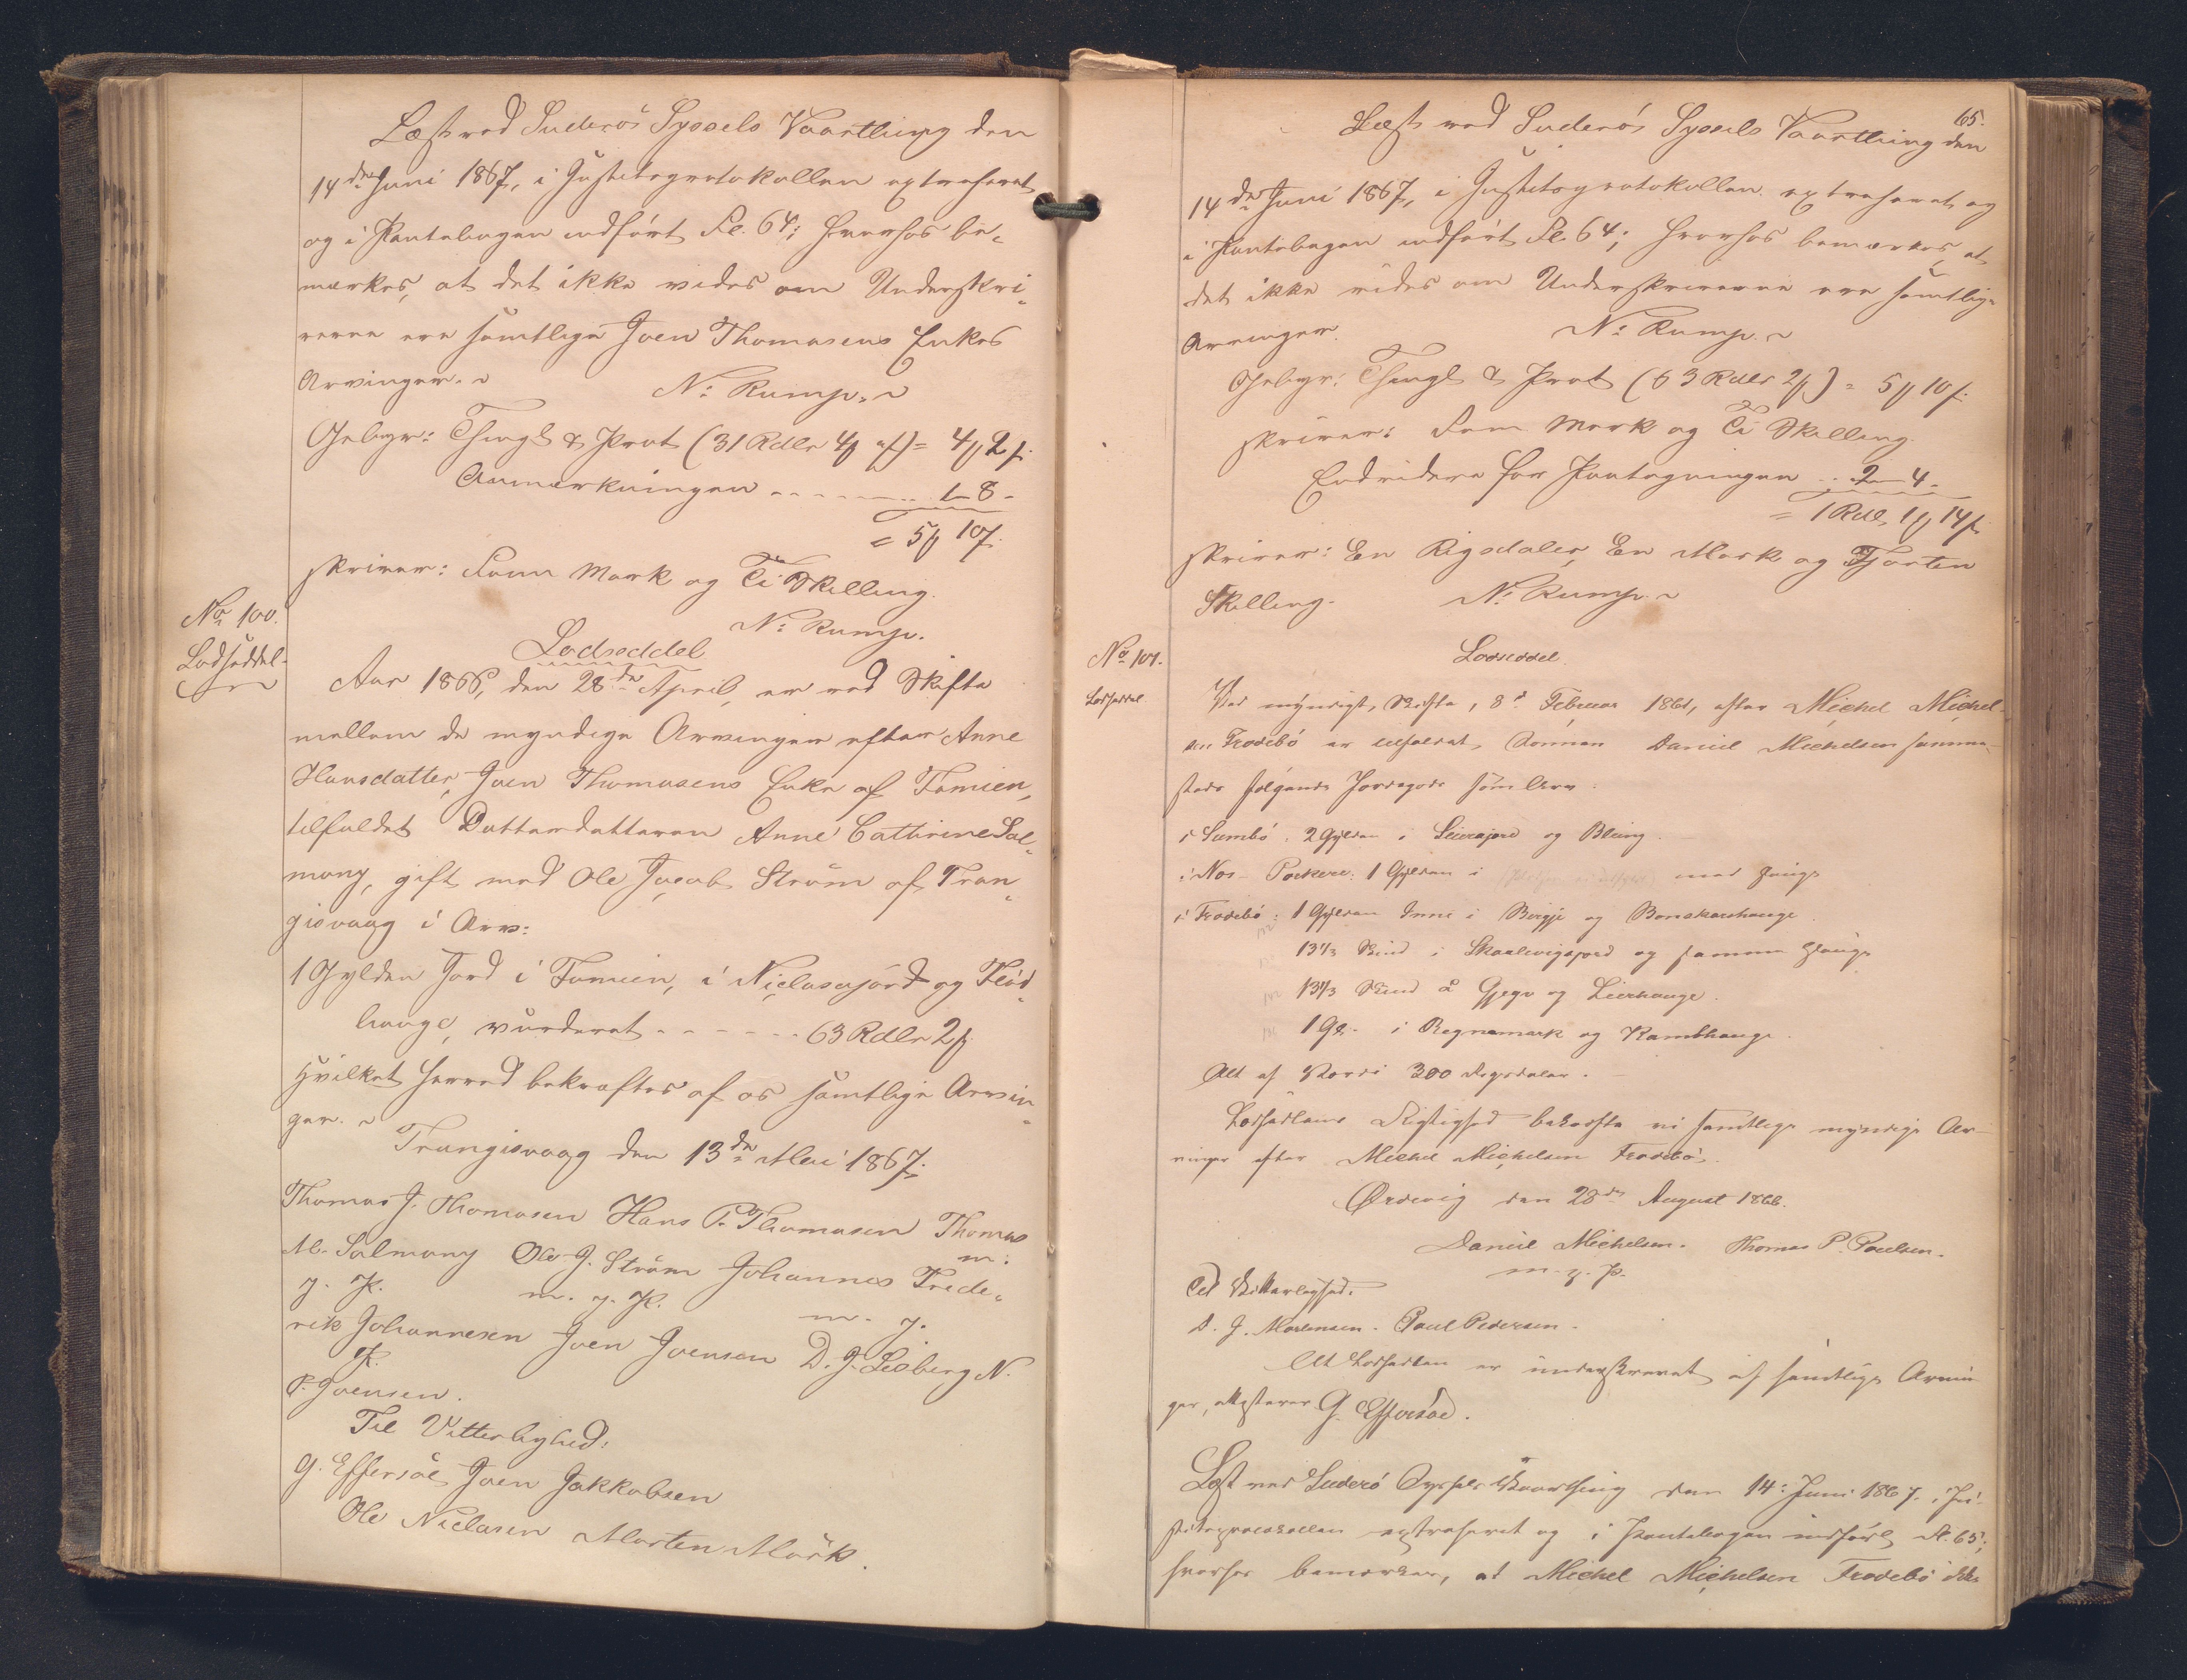 Læst ved Suderös Syssels Vaartthing den
14de Juni 1867, i Justitsprotokollen extraheret
og i Pantebogen indfört Fol. 64; hvorhos be-
mærkes, at det ikke vides om Underskri-
verne ere samtlige Joen Thomasens Enkes
Arvinger.
N: Rump.
Gebyr: Thingl & Prot (31 Rdlr 4 ß) = 4 ß 2 ß.
Anmærkningen - - - - - 1 - 8 -
= 5 ß 10 ß.
skriver: Fem Mark og Ti Skilling.
N: Rump.
No 100.
Lodseddel.
Lodseddel
Aar 1866, den 28de April, er ved Skifte
mellem de myndige Arvinger efter Anne
Hansdatter, Joen Thomasens Enke af Famien,
tilfaldet Datterdatteren Anne Cathrine Sal-
mony, gift med Ole Jacob Ström af Tran-
gisvaag i Arv:
1 Gylden Jord i Famien, i Niclasajörd og Flöd-
hauge, vurderet - - - - - 63 Rdlr 2 ß
Hvilket herved bekræftes af os samtlige Arvin-
ger.
Trangisvaag den 13de Mai 1867.
Thomas J. Thomasen Hans P. Thomasen Thomas
m:
M. Salmony Ole J. Ström Johannes Frede-
j. P. m. j. P. m. j.
rik Johannesen Joen Joensen D. J. Lisberg N.
P.
P. Joensen.
Til Vitterlighed:
G. Effersöe Joen Jakkobsen
Ole Niclasen Morten Mörk.
65.
Læst ved Suderös Syssels Vaartthing den
14de Juni 1867, i Justitsprotokollen extraheret og
i Pantebogen indfört Fol. 64; hvorhos bemærkes, at
det ikke vides om Underskriverne ere samtlige
Arvinger.
N: Rump.
Gebyr: Thingl & Prot (63 Rdlr 2 ß) = 5 ß 10 ß.
skriver: Fem Mark og Ti Skilling.
Endvidere for Paategningen .. 2 - 4 -
= 1 Rdl. 1 ß 14 ß.
skriver: En Rigsdaler, En Mark og Fjorten
Skilling.
N: Rump.
No 101.
Lodseddel
Lodseddel.
Ved myndigt Skifte, 8d Februar 1861, efter Michel Michel-
sen Frodebö er tilfaldet Sönnen Daniel Michelsen samme-
steds fölgende Jordegods som Arv.
i Sumbö. 2 Gylden i Leirajord og Bleing.
i Nos- Porkere: 1 Gylden i med Hauge
i Frodebö: 1 Gylden Inni i Birgje og Bonskarshauge.
13 1/3 Skind i Skaalevigsjord og samme Hauge
13 1/3 Skind å Gjegv og Leirhauge.
1 Gl. i Regnamark og Kambhauge.
Alt af Værdi 300 Rigsdaler.
Lodsedlens Rigtighed bekræfte vi samtlige myndige Ar-
vinger efter Michel Michelsen Frodebö.
Ørdevig den 28de August 1866.
Daniel Michelsen. Thomas P. Poulsen.
m. j. P.
Til Vitterlighed:
D. J. Mortensen. Poul Pedersen.
At Lodsedlen er underskrevet af samtlige Arvin-
ger, attesterer G. Effersöe.
Læst ved Suderö Syssels Vaarthing den 14: Juni 1867, i Ju-
stitsprotokollen extraheret og i Pantebogen indfört Fl. 65;
hvorhos bemærkes, at Michel Michelsen Frodebö ikke